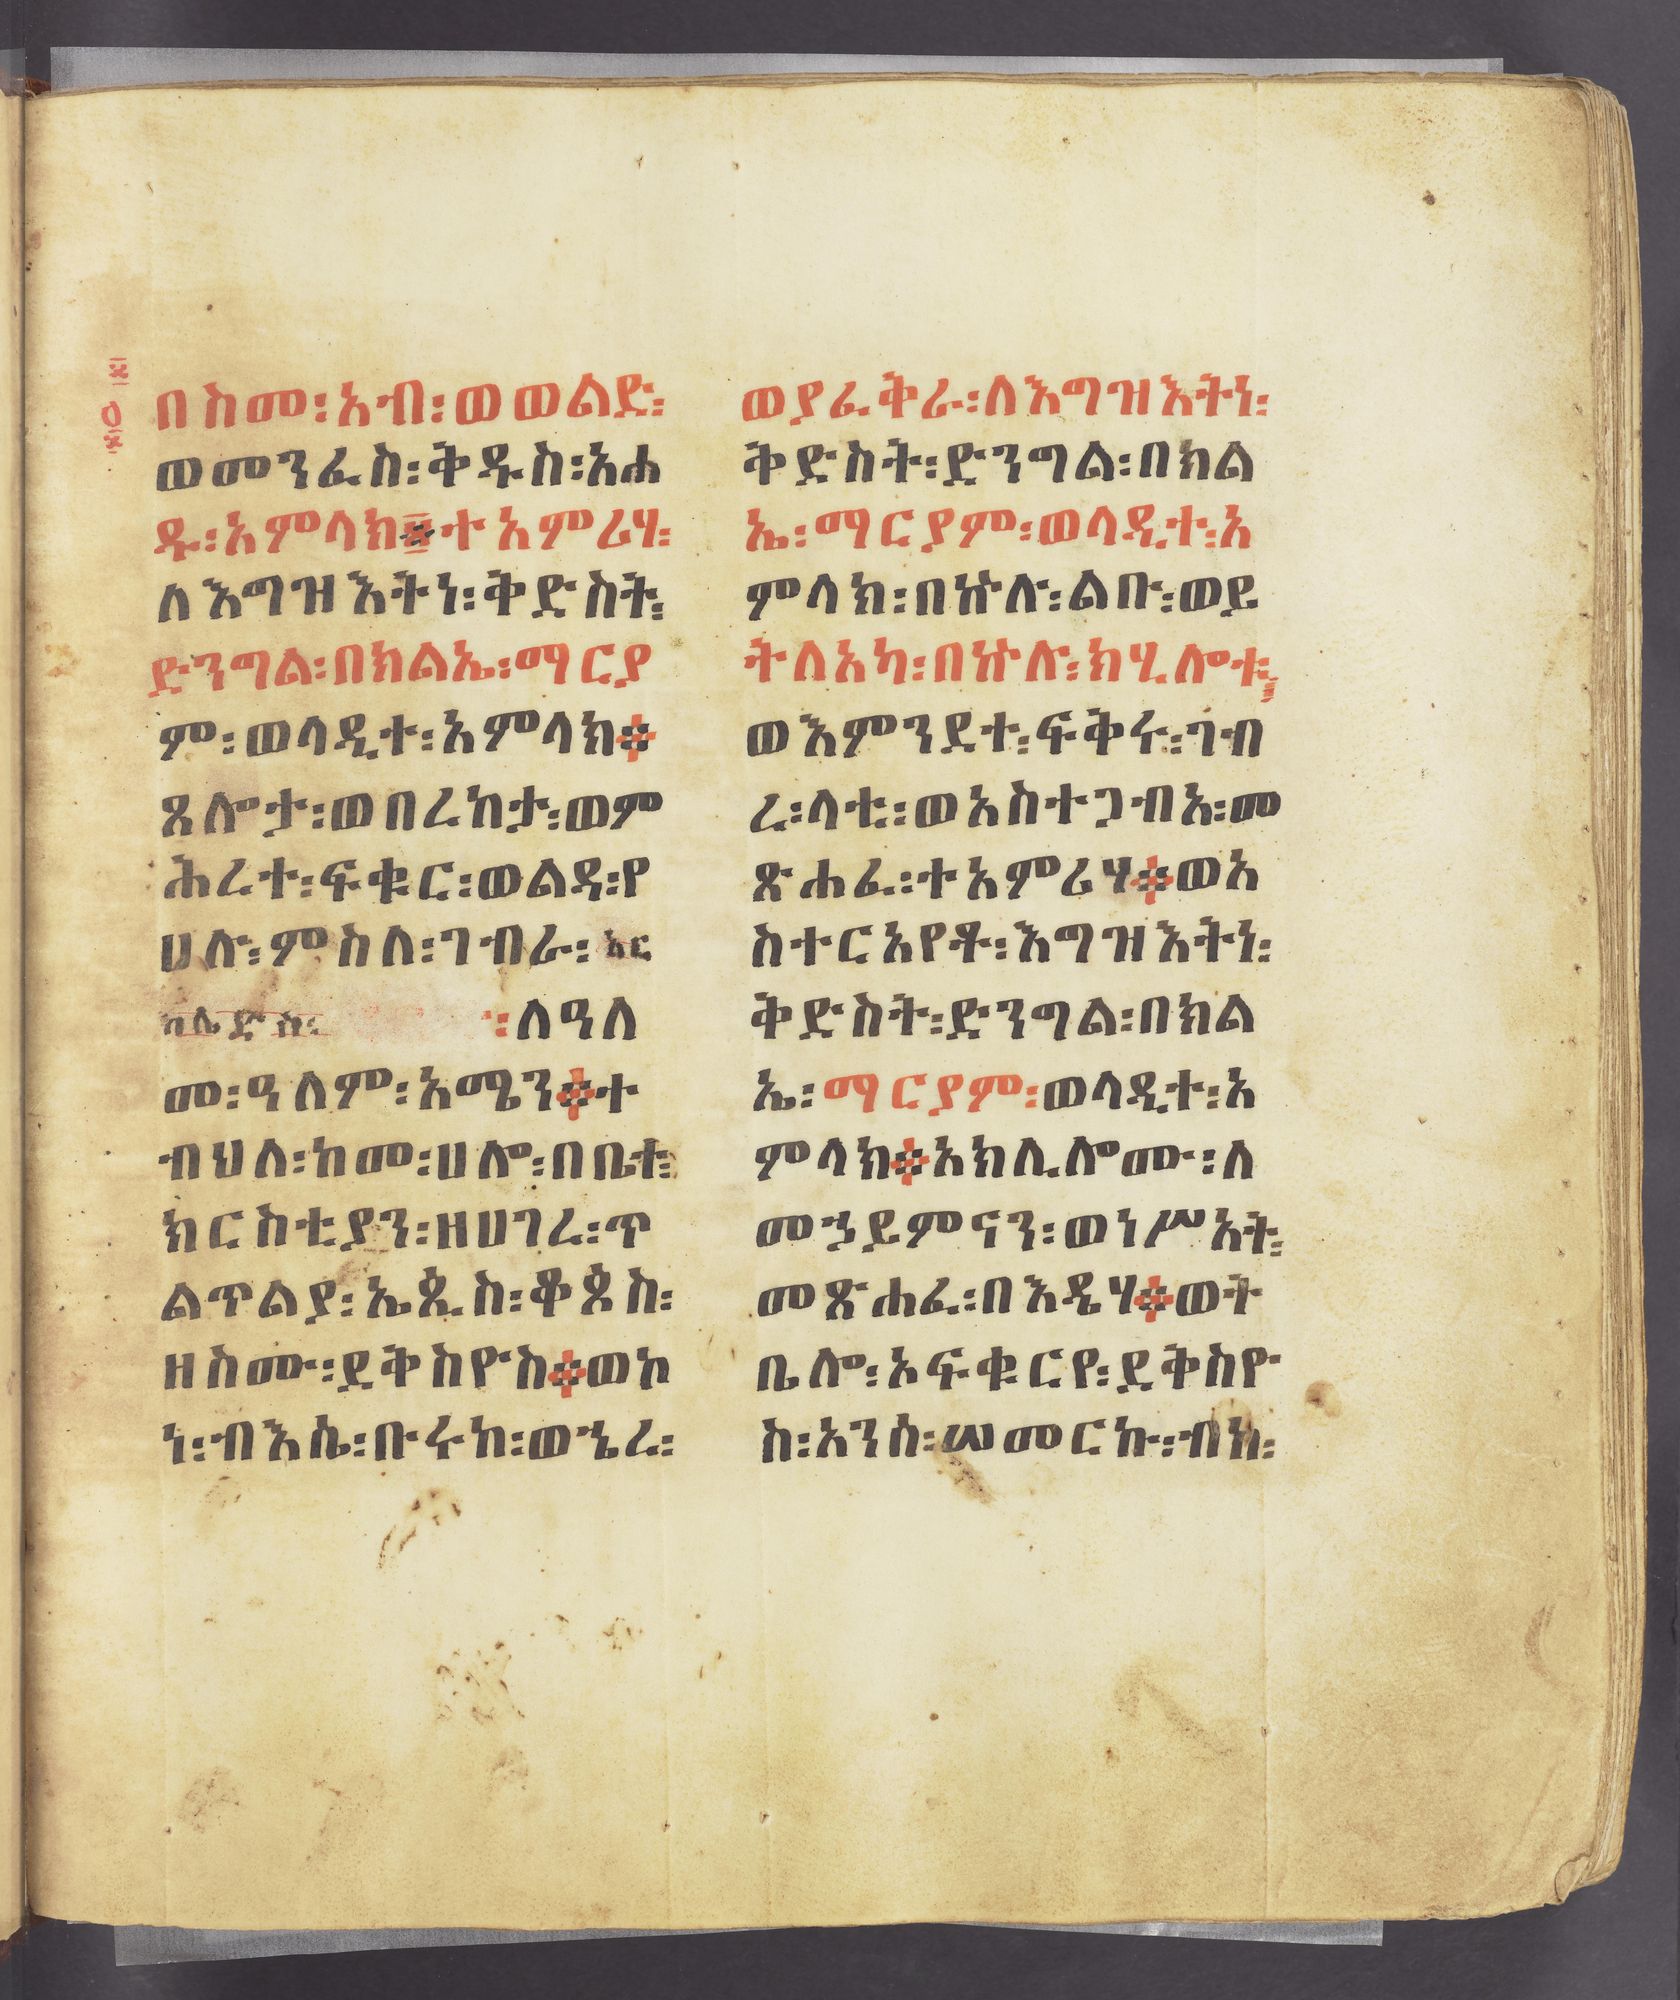 በስመ፡አብ፡ወወልድ፡
ወመንፈስ፡ቅዱስ፡አሐ
ዱ፡አምላክ፨ተአምሪሃ፡
ለእግዝእትነ፡ቅድስት፡
ድንግል፡በክልኤ፡ማርያ
ም፡ወላዲተ፡አምላክ፨
ጸሎታ፡ወበረከታ፡ወም
ሕረተ፡ፍቁር፡ወልዳ፡የ
ሀሉ፡ምስለ፡ገብራ፡
፡ለዓለ
መ፡ዓለም፡አሜን፨ተ
ብህለ፡ከመ፡ሀሎ፡በቤተ፡
ክርስቲያን፡ዘሀገረ፡ጥ
ልጥልያ፡ኤጲስ፡ቆጶስ፡
ዘስሙ፡ደቅስዮስ፨ወኮ
ነ፡ብእሴ፡ቡሩከ፡ወኄረ፡
ወያፈቅራ፡ለእግዝእትነ፡
ቅድስት፡ድንግል፡በክል
ኤ፡ማርያም፡ወላዲተ፡አ
ምላክ፡በኵሉ፡ልቡ፡ወይ
ትለአካ፡በኵሉ፡ክሂሎቱ፡
ወእምንደተ፡ፍቅሩ፡ገብ
ረ፡ላቲ፡ወአስተጋብአ፡መ
ጽሐፈ፡ተአምሪሃ፨ወአ
ስተርአየቶ፡እግዝእትነ፡
ቅድስት፡ድንግል፡በክል
ኤ፡ማርያም፡ወላዲተ፡አ
ምላክ፨አክሊሎሙ፡ለ
መኃይምናን፡ወነሥአት፡
መጽሐፈ፡በእዴሃ፨ወት
ቤሎ፡ኦፍቁርየ፡ደቅስዮ
ስ፡አንሰ፡ሠመርኩ፡ብከ፡